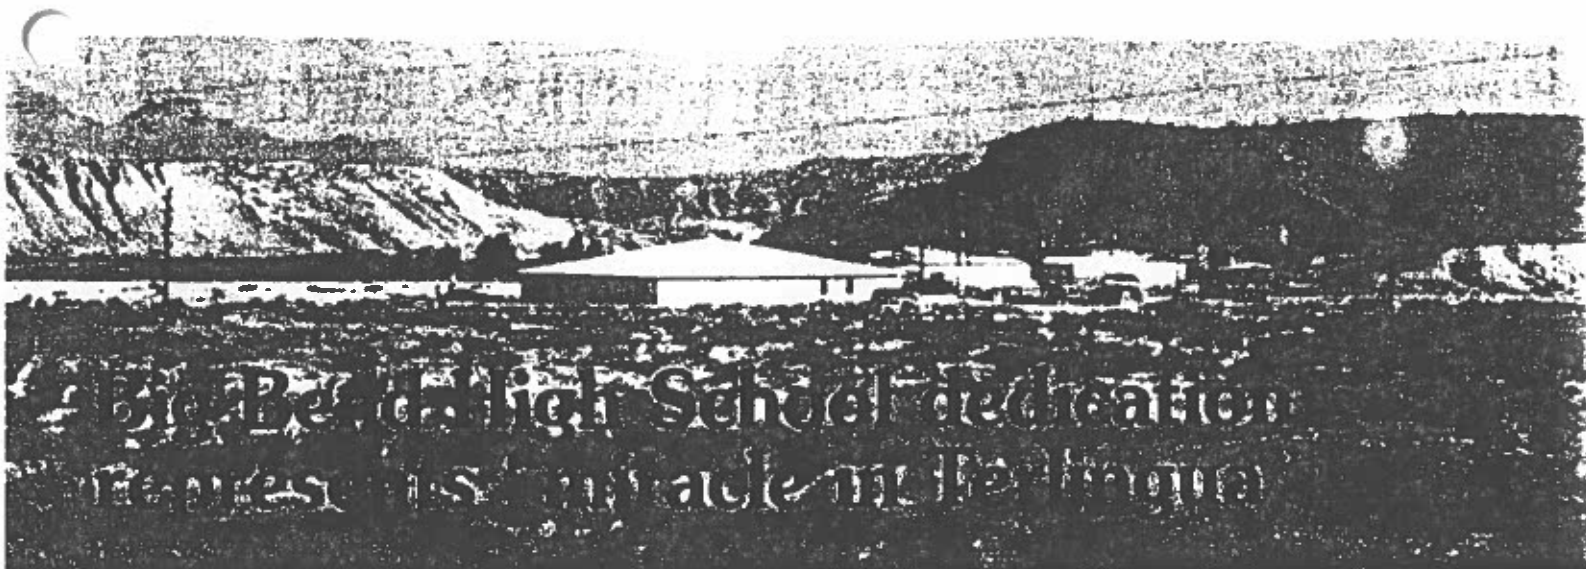 Big Bend High School dedication
represents 'miracle in Terlingua'